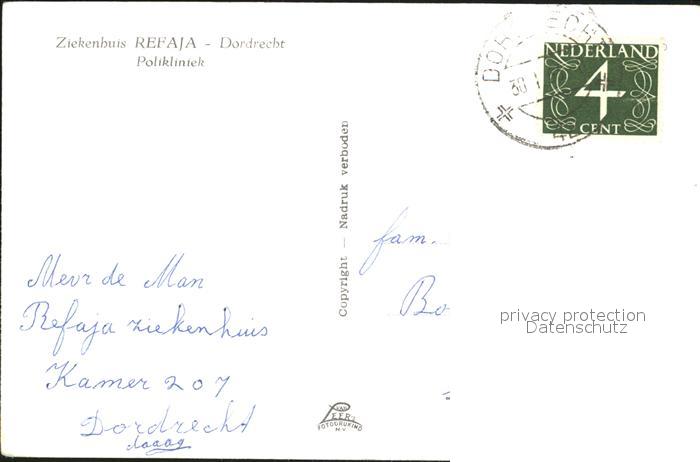 Ziekenhuis REFAJA - Dordrecht
Polikliniek
DORDRECHT
30 1
NEDERLAND
4
CENT
Copyright — Nadruk verboden
fam.
Bo
Mevr de Man
Refaja ziekenhuis
Kamer 207
Dordrecht
daaag
VAN
LEER'S
FOTODRUKIND
N.V.
privacy protection
Datenschutz